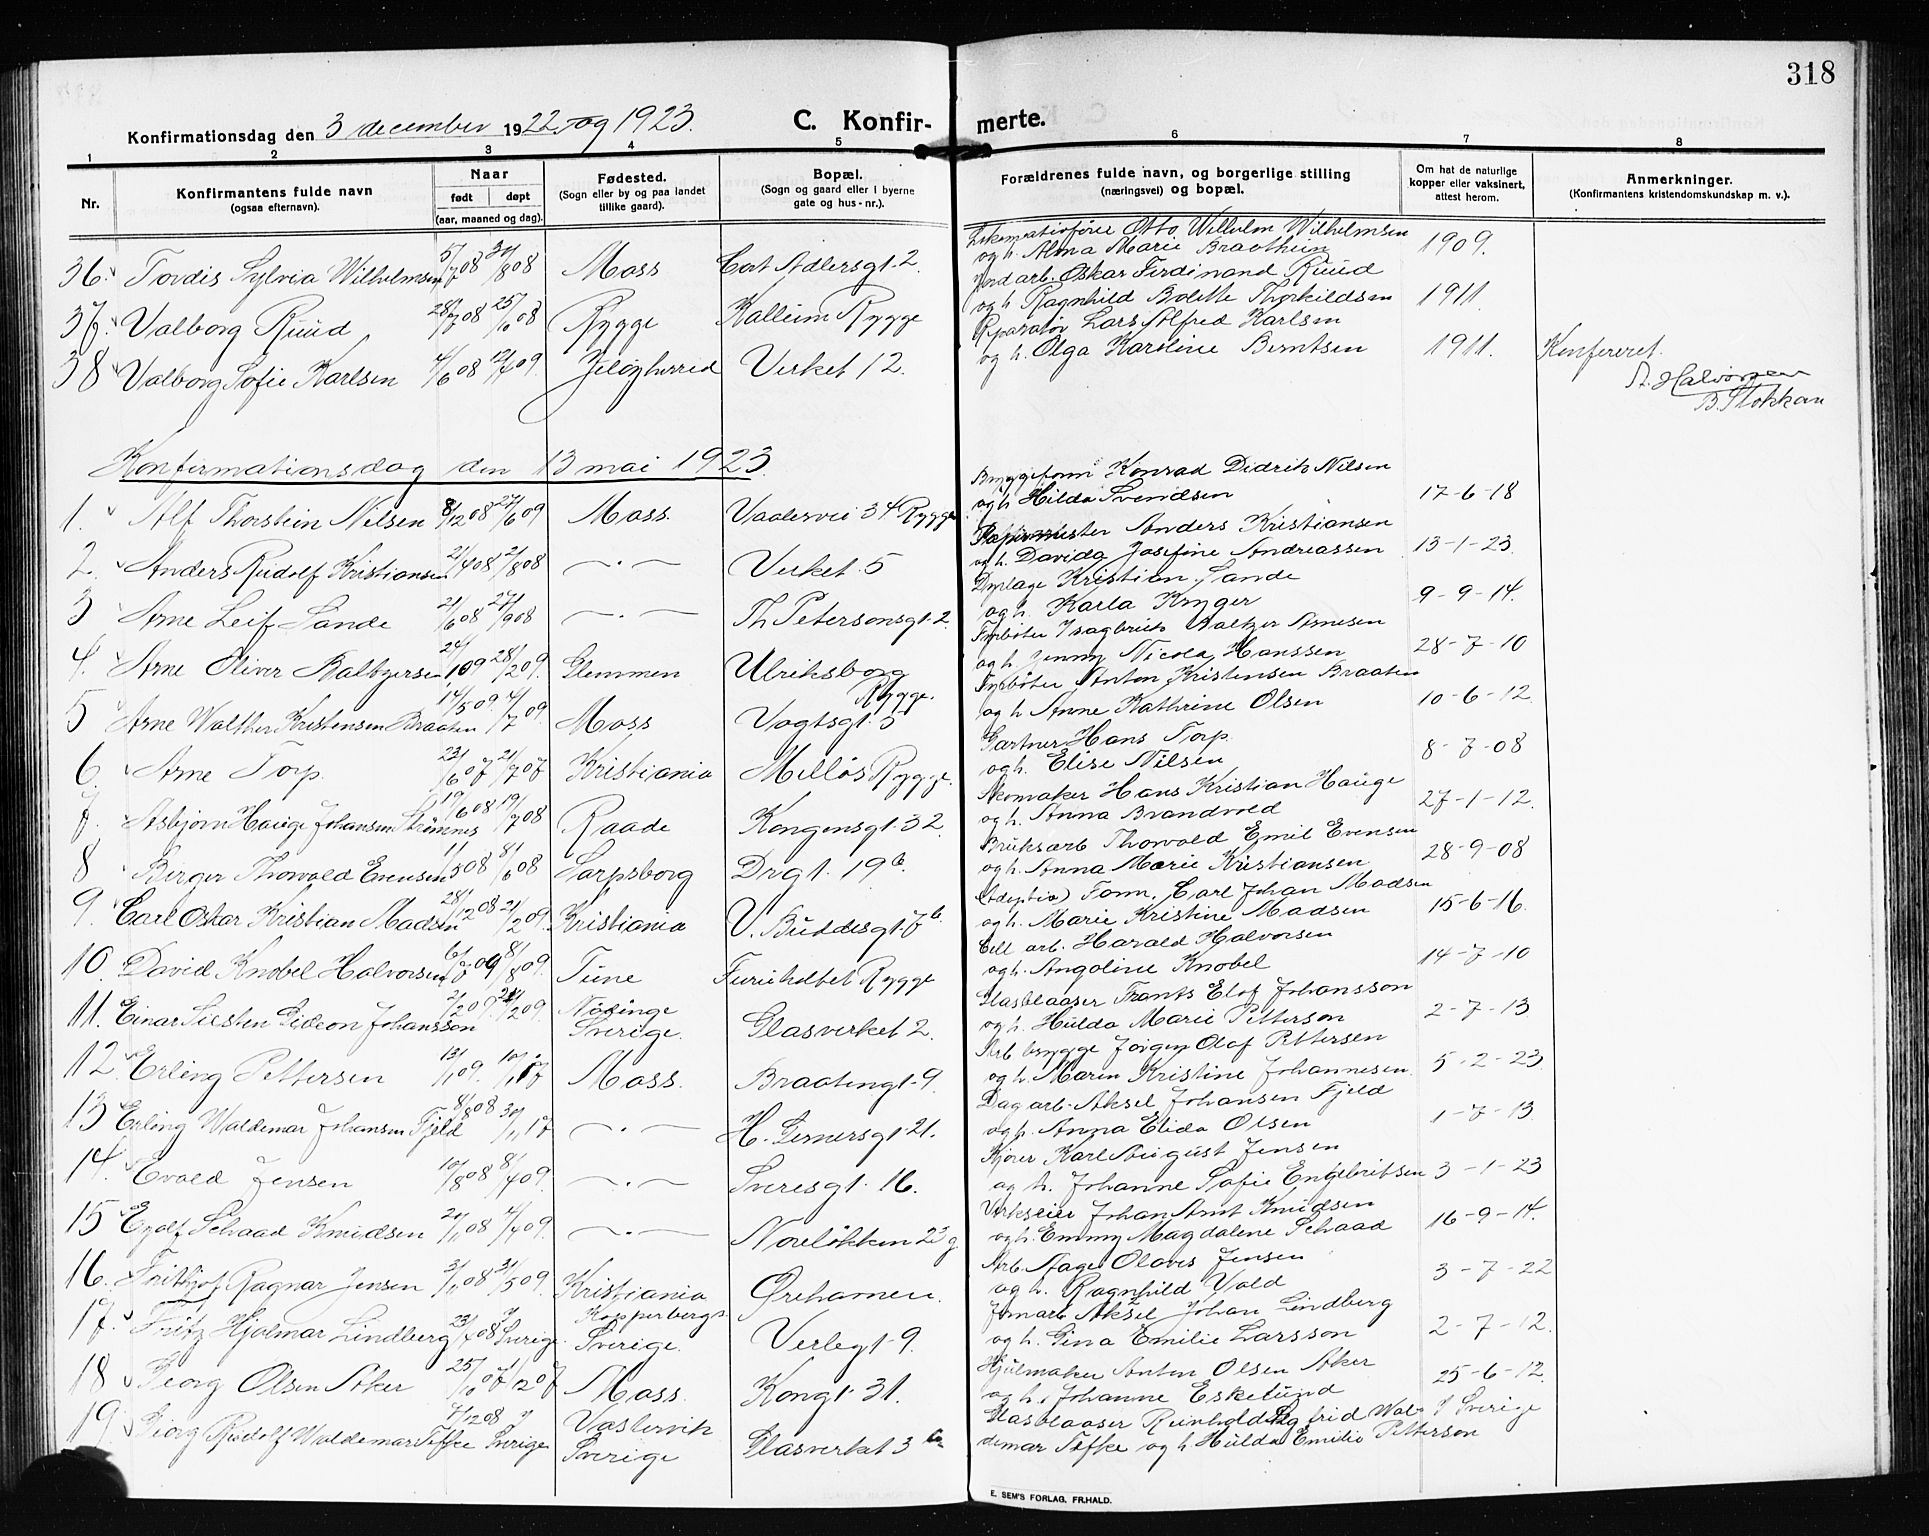 318
Konfirmationsdag den 3 december 1922 og 1923.
C. Konfir- merte.
1 2 3 4 5 6 7 8
Nr.
Konfirmantens fulde navn
(ogsaa efternavn).
Naar
født døpt
(aar, maaned og dag).
Fødested.
(Sogn eller by og paa landet
tillike gaard).
Bopæl.
(Sogn og gaard eller i byerne
gate og hus-nr.).
Forældrenes fulde navn, og borgerlige stilling
(næringsvei) og bopæl.
Om hat de naturlige
kopper eller vaksinert,
attest herom.
Anmerkninger.
(Konfirmantens kristendomskundskap m. v.).
Otto Wilhelm Wilhelmsen
36. Tordis Sylvia Wilhelmsen 5/7 08 30/8 08 Moss Cort Adlersgt. 2. og h. Alma Marie Braathein 1909.
Jordarb. Oskar Ferdinand Ruud
37. Valborg Ruud 28/7 08 25/10 08 Rygge Kalleim Rygge og h. Ragnhild Bolette Thorkildsen 1911
Reparatør Lars Alfred Karlsen
38 Valborg Sofie Karlsen 4/6 08 12/4 09. Jeløy herred Verket 12. og h. Olga Karoline Berntsen 1911. Konfereret.
A. Halvorsen
B. Stokkan
Konfirmationsdag den 13 mai 1923.
Byggeform Konrad Didrik Nilsen
1. Alf Thorstein Nilsen 8/12 08 27/6 09 Moss. Vaalervei 34 Rygge og h. Hilda Svendsen 17-6-18
Anders Kristiansen
2. Anders Rudolf Kristiansen 21/4 08 2/8 08 —·— Verket 5 og h. Davida Josefine Andreassen 13-1-23.
Kristian Sande
3 Arne Leif Sande 21/6 08 27/9 08 —·— Th. Petersonsgt. 2. og h. Karla Kryger 9-9-14.
Fyrbøter Baltzer Arnesen
4. Arne Oliver Baltzersen 24/1 09 28/2 09. Glemmen Ulriksborg Rygge. og h. Jenny Nicola Hanssen 28-7-10
Fyrbøter Anton Kristensen Braaten
5 Arne Walther Kristensen Braaten 14/5 09. 4/7 09. Moss Vogtsgt. 5 og h. Anne Kathrine Olsen 10-6-12.
Gartner Hans Torp.
6. Arne Torp. 23/6 07 21/7 07 Kristiania Melløs Rygge. og h. Elise Nilsen 8-7-08
Skomaker Hans Kristian Hauge
7. Asbjørn Hauge Johansen Strømnes 19/6 08 19/7 08 Raade Kongensgt. 32. og h. Anna Brandvold 27-1-12.
Bruksarb Thorvald Emil Evensen
8 Birger Thorvald Evensen 1/5 08 8/6 08 Sarpsborg Drgt. 19b. og h. Anna Marie Kristiansen 28-9-08
(Adoptiv) Form. Carl Johan Madsen
9. Carl Oskar Kristian Madsen 28/12 08 21/2 09. Kristiania V. Buddesgt. 7b. og h. Marie Kristine Madsen 15-6-16.
Cell. arb. Harald Halvorsen
10. David Knobel Halvorsen 6/7 09 8/8 09. Tune Furuholtet Rygge og h. Angoline Knobel 14-7-10
Glasblaaser Frants Elof Johansson
11. Einar Sixten Gideon Johansson 2/2 09. 24/2 09. Nödinge Sverige. Glasverket 2. og h. Hulda Marie Petterson 2-7-13
Arb brygge Jørgen Olaf Pettersen
12 Erling Pettersen 13/1 09. 10/1 17 Moss. Braatengt. 9. og h. Maren Kristine Johannesen. 5-2-23.
Dagarb. Aksel Johansen Fjeld
13 Erling Waldemar Johansen Fjeld 8/8 08 30/11 17 —·— H. Gernersgt. 21. og h. Anna Elida Olsen 1-7-13.
Kjører Karl August Jensen
14. Evald Jensen 10/8 08 8/4 09. —·— Sverresgt. 16. og h. Johanne Sofie Engebritsen 3-1-23
Verkseier Johan Arnt Knudsen
15 Eyolf Schaad Knudsen 20/11 08 4/4 09. —·— Noreløkken 23 g og h. Emmy Magdalene Schaad 16-9-14.
Arb. Aage Olavus Jensen
16. Frithjof Ragnar Jensen 3/11 08 31/5 09. Kristiania Ørehamen. og h. Ragnhild Vold 3-7-22
Jernarb Aksel Johan Lindberg
17. Fritz Hjalmar Lindberg 23/4 08 i Sverige. Kopperbergs Sverige. Verlegt. 9. og h. Gina Emilie Larsson 2-7-12.
Hjulmaker Anton Olsen Aker
18 Georg Olsen Aker 25/10 07 1/12 07 Moss. Kongt. 31. og h. Johanne Eskelund 25-6-12.
Glasblaaser Reinhold Sigfrid Wal- i Sverige
19. Georg Rudolf Waldemar Töfke 7/12 08 i Sverige Vastervik Sverige Glasverket 3 demar Töfke og h. Hulda Emilie Petterson
E. SEM'S FORLAG, FR.HALD.